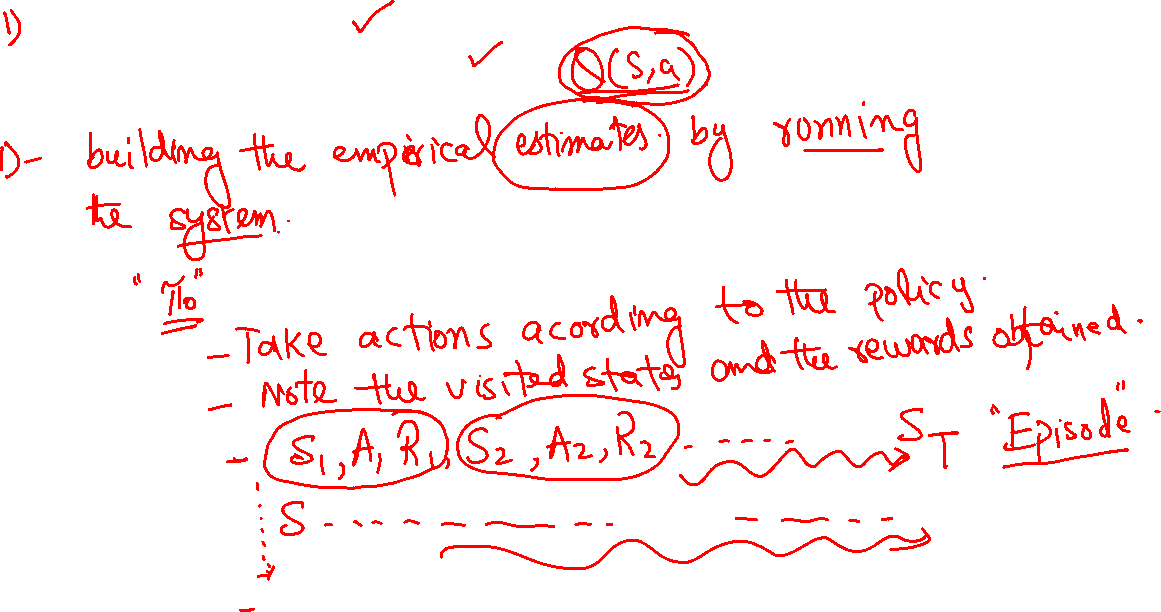 1)
Q(S,a)
1)- building the empirical estimates by running
the system.
"π₀"
- Take actions acording to the policy.
- Note the visited states and the rewards obtained.
- S₁, A₁ R₁, S₂, A₂, R₂ - ----- S_T "Episode".
S - - - - - - - - - - - - -
-